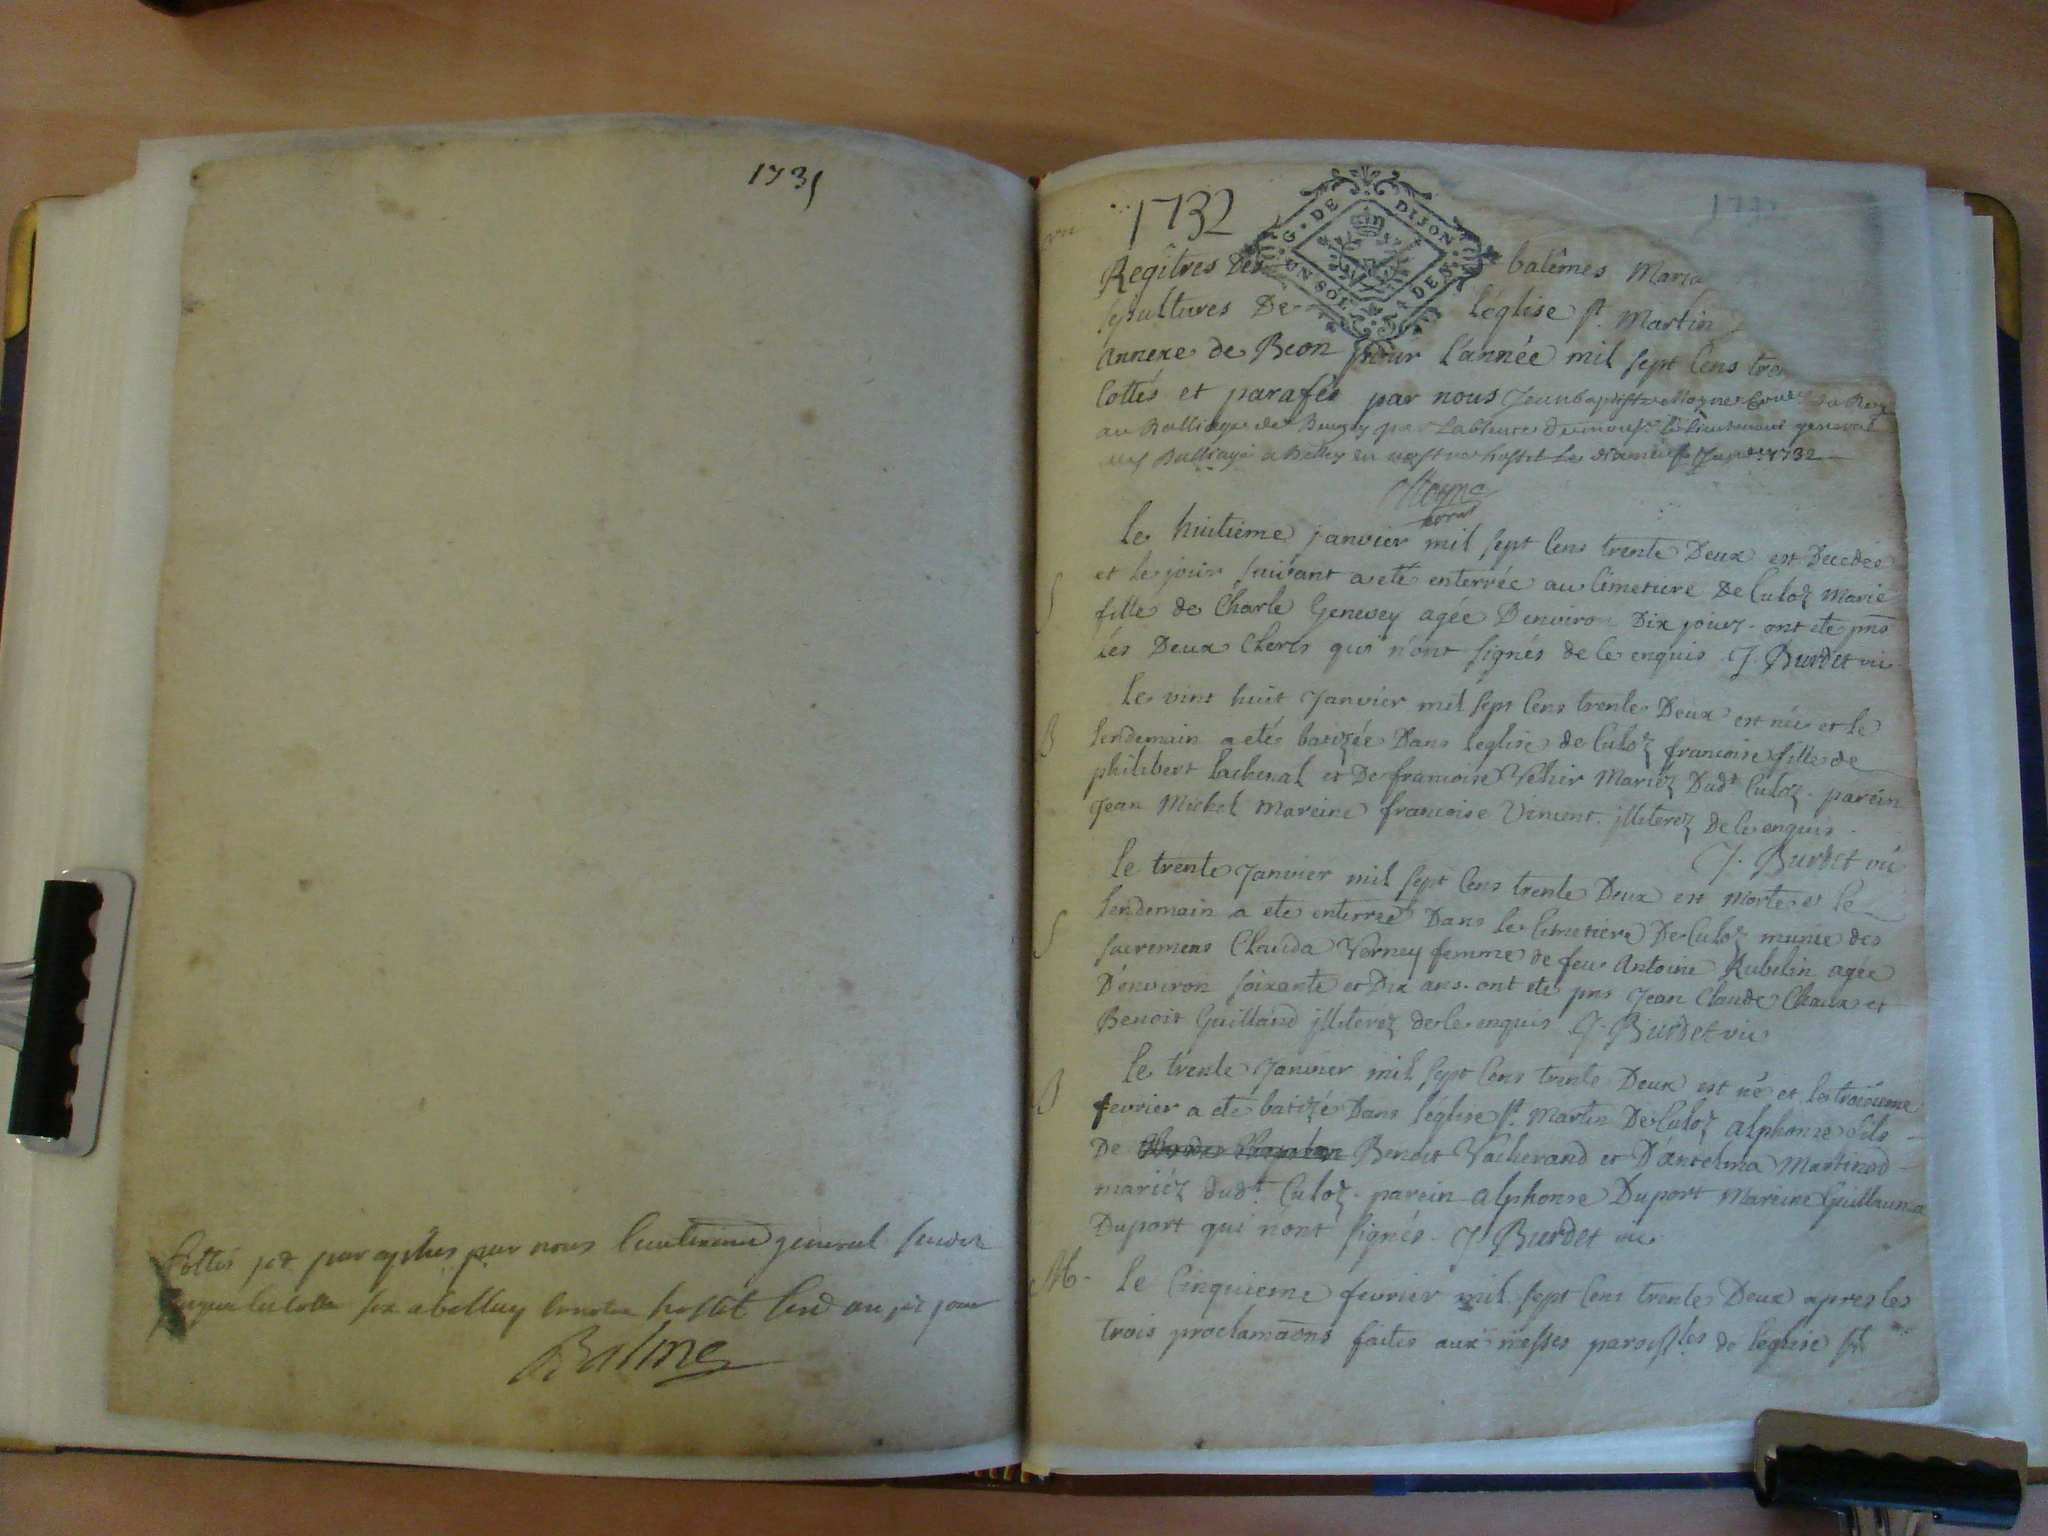 1731
Cottés par nous lieutenant general
hostel
Balme
1732
G. DE DIJON
UN SOL DES
Regîtres Des batêmes Maria
sepultures De l'église st. Martin
annexe de Beon pour l'année mil sept cens tren
cottés et parafés par nous Jean baptiste
au Balliage de Bugey lieutenant general
Balliage a Belley en nostre hostel le 1732
le huitieme janvier mil sept cens trente Deux est Decedée
et le jour suivant a eté enterrée au cimetiere De Culoz Marie
S
fille de Charle Genevey agée D'environ Dix jours. ont eté pns
les Deux Clercs qui n'ont signés de ce enquis. J. Burdet vic
le vint huit Janvier mil sept cens trente Deux est née et le
B
lendemain a eté batizée Dans l'eglise de Culoz francoise fille de
philibert Lachenal et De francoise Mariez Dudt Culoz. parein
Jean Michel Mareine francoise Vincent. jlliterez De ce enquis.
J. Burdet vic
le trente Janvier mil sept cens trente Deux est morte et le
lendemain a eté enterrée Dans le cimetiere De Culoz munie des
S
sacremens Clauda Verney femme de feu Antoine Rubelin agée
D'environ soixante et Dix ans. ont eté pns Jean Claude Chaux et
Benoit Guilland jlliterez de ce enquis J. Burdet vic
le trente Janvier mil sept cens trente Deux est né et le troisieme
B
fevrier a eté batizé Dans l'église st. Martin De Culoz alphonse fils
De Benoit Vacherand et D'antelma Martinod
mariéz dudt. Culoz. parein alphonse Duport Mareine Guillauma
Duport qui n'ont signés. J. Burdet vic
M.
le Cinquieme fevrier mil sept cens trente Deux apres les
trois proclamaõns faites aux messes paroissles de l'eglise st